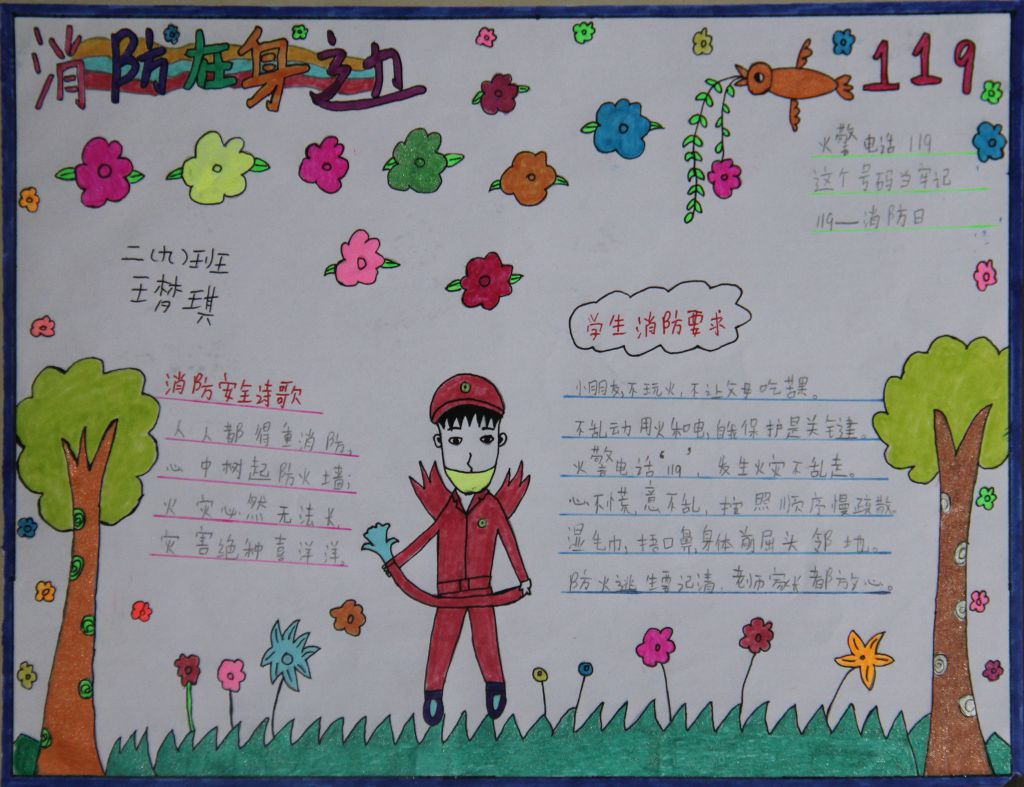 消防在身边
119
火警电话 119
这个号码当牢记
119—消防日
二(九)班
王梦琪
学生消防要求
小朋友,不玩火,不让父母吃苦果。
不乱动用火和电,自我保护是关键。
火警电话“119”，发生火灾不乱走。
心不慌,意不乱,按照顺序慢疏散。
湿毛巾,捂口鼻,身体前屈头邻地。
防火逃生要记清,老师家长都放心。
消防安全诗歌
人人都得重消防,
心中树起防火墙;
火灾必然无法长,
灾害绝种喜洋洋。